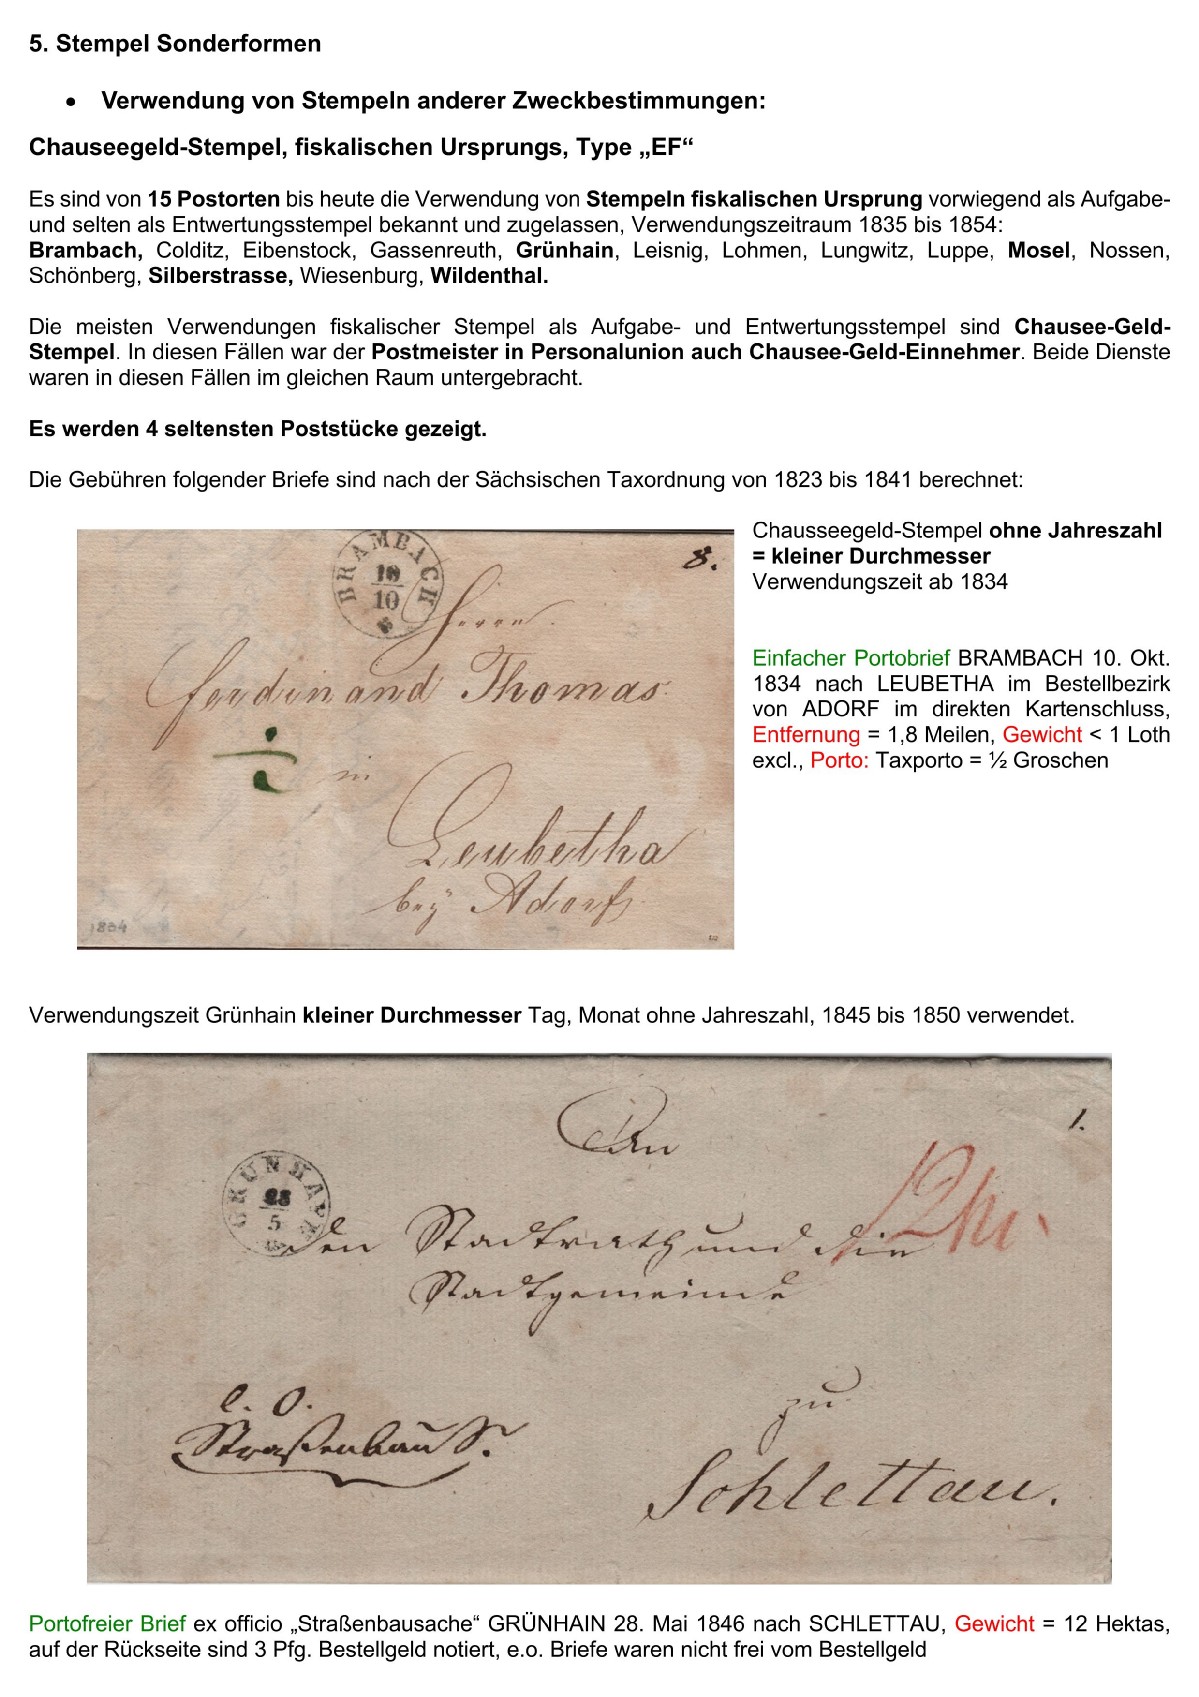 5. Stempel Sonderformen
• Verwendung von Stempeln anderer Zweckbestimmungen:
Chauseegeld-Stempel, fiskalischen Ursprungs, Type „EF“
Es sind von 15 Postorten bis heute die Verwendung von Stempeln fiskalischen Ursprung vorwiegend als Aufgabe-
und selten als Entwertungsstempel bekannt und zugelassen, Verwendungszeitraum 1835 bis 1854:
Brambach, Colditz, Eibenstock, Gassenreuth, Grünhain, Leisnig, Lohmen, Lungwitz, Luppe, Mosel, Nossen,
Schönberg, Silberstrasse, Wiesenburg, Wildenthal.
Die meisten Verwendungen fiskalischer Stempel als Aufgabe- und Entwertungsstempel sind Chausee-Geld-
Stempel. In diesen Fällen war der Postmeister in Personalunion auch Chausee-Geld-Einnehmer. Beide Dienste
waren in diesen Fällen im gleichen Raum untergebracht.
Es werden 4 seltensten Poststücke gezeigt.
Die Gebühren folgender Briefe sind nach der Sächsischen Taxordnung von 1823 bis 1841 berechnet:
BRAMBACH
10
10
8.
Herrn
Ferdinand Thomas
in
Leubetha
bey Adorf
1834
Chausseegeld-Stempel ohne Jahreszahl
= kleiner Durchmesser
Verwendungszeit ab 1834
Einfacher Portobrief BRAMBACH 10. Okt.
1834 nach LEUBETHA im Bestellbezirk
von ADORF im direkten Kartenschluss,
Entfernung = 1,8 Meilen, Gewicht < 1 Loth
excl., Porto: Taxporto = ½ Groschen
Verwendungszeit Grünhain kleiner Durchmesser Tag, Monat ohne Jahreszahl, 1845 bis 1850 verwendet.
1.
An
GRÜNHAYN
28
5
den Stadtrath und die
Stadtgemeinde
e. O.
Straßenbau S.
zu
Schlettau.
Portofreier Brief ex officio „Straßenbausache“ GRÜNHAIN 28. Mai 1846 nach SCHLETTAU, Gewicht = 12 Hektas,
auf der Rückseite sind 3 Pfg. Bestellgeld notiert, e.o. Briefe waren nicht frei vom Bestellgeld